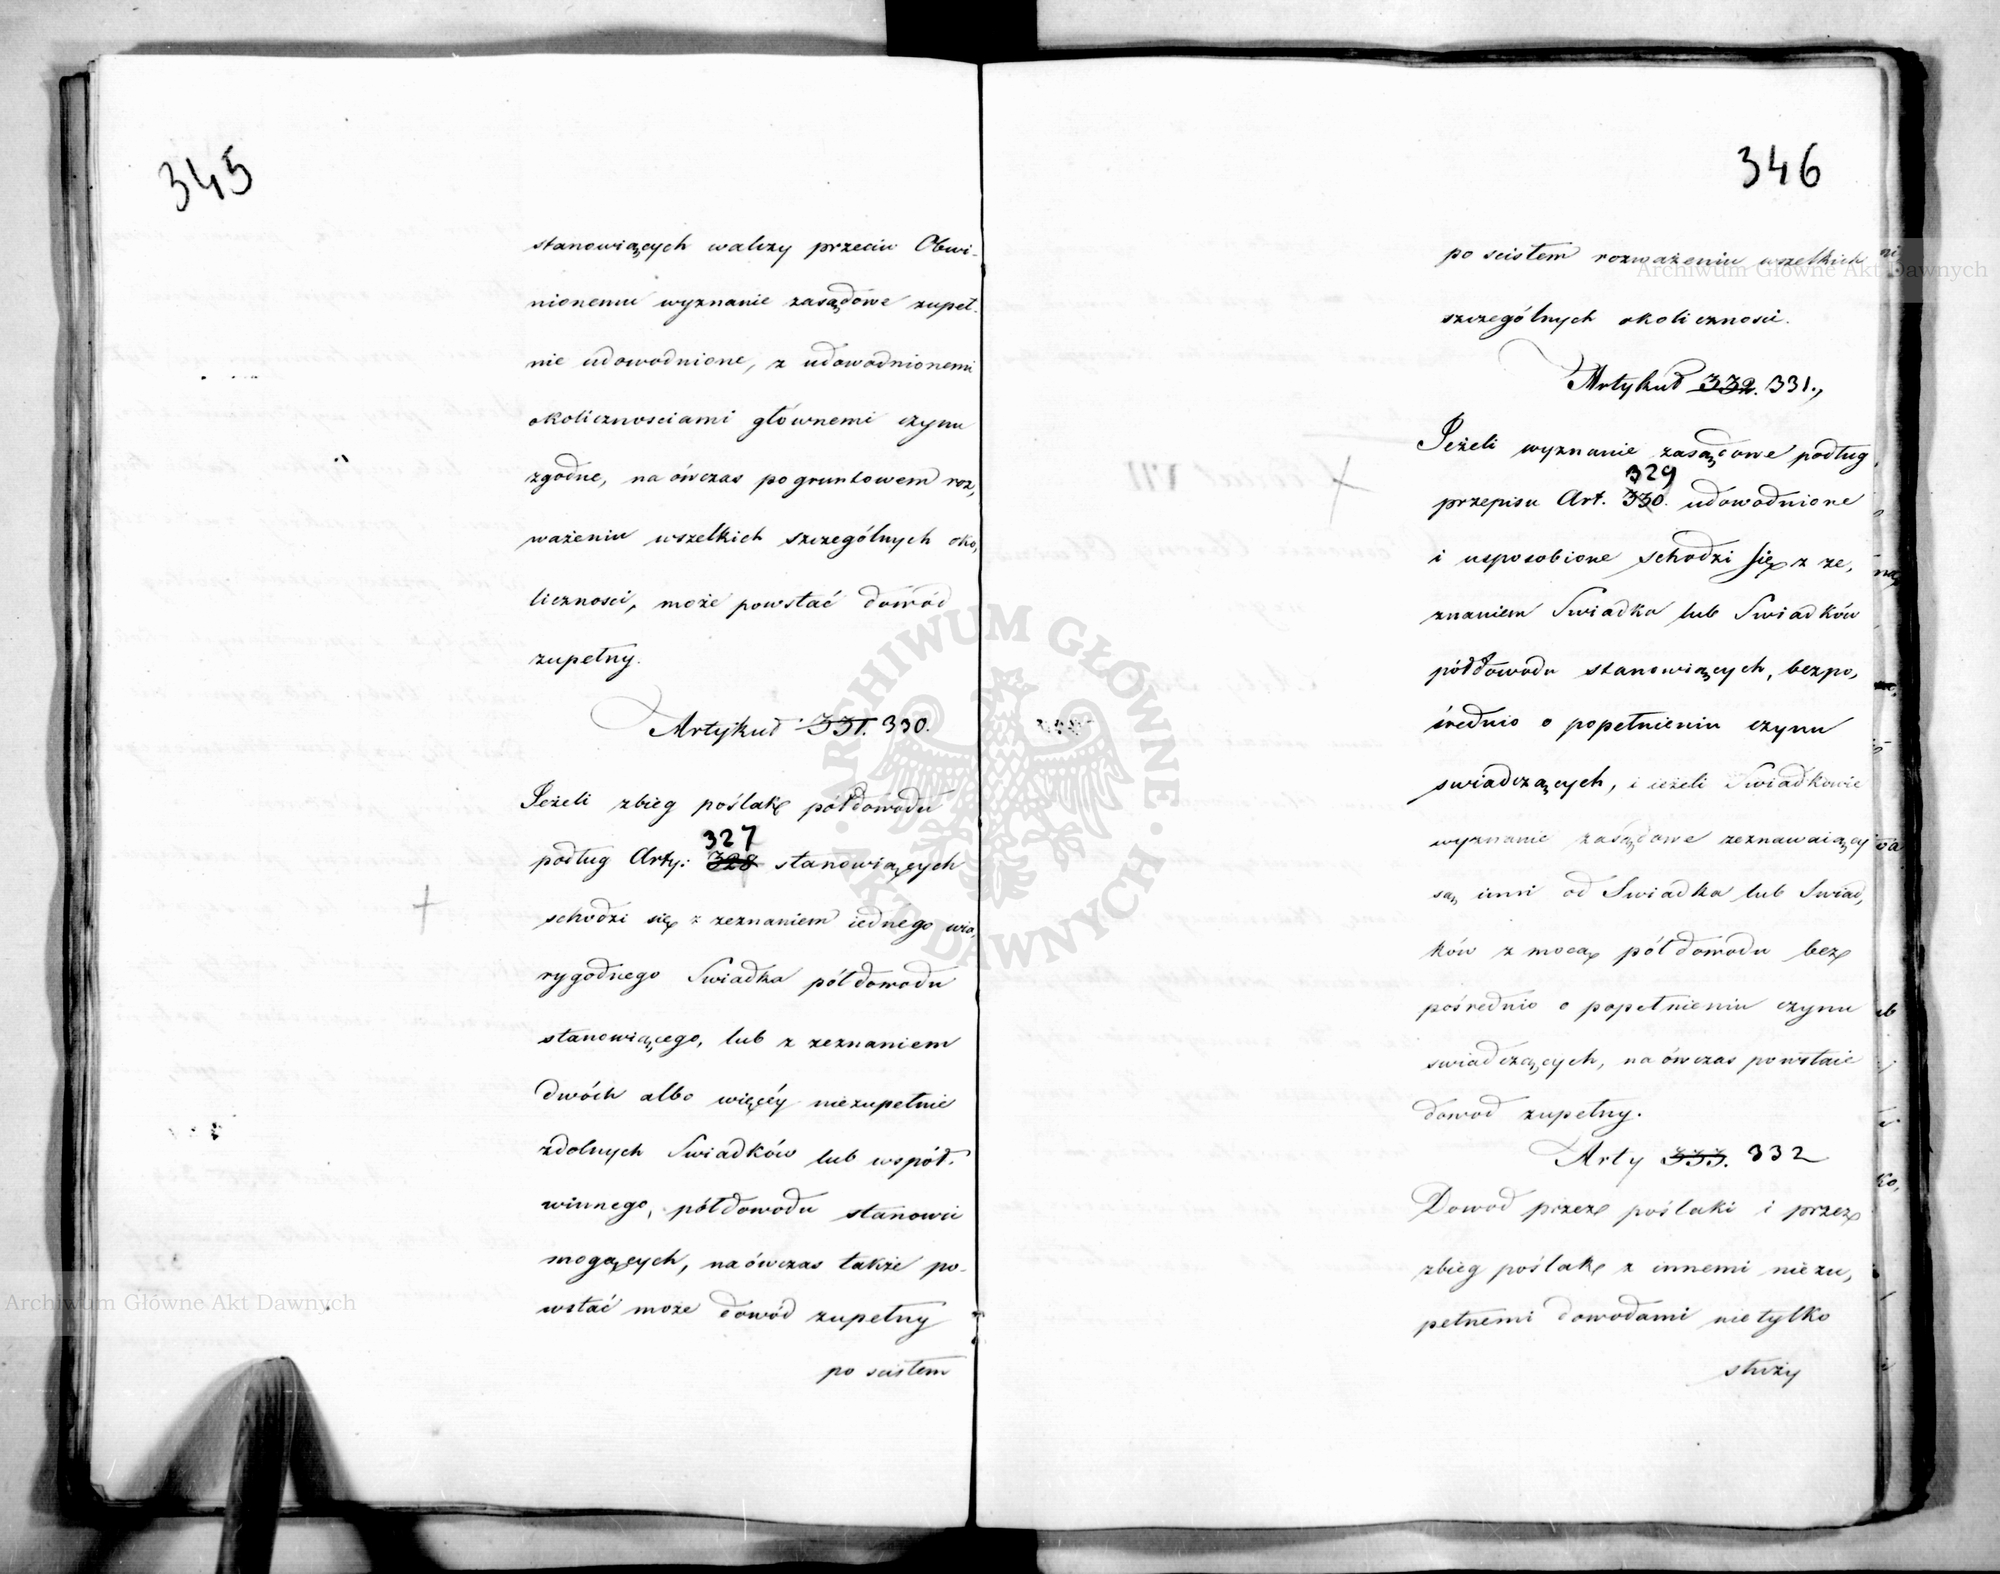 345
stanowiących walczy przeciw Obwi-
nionemu wyznanie zasądowe zupeł-
nie udowodnione, z udowodnionemi
okolicznosciami głównemi czynu
zgodne, na ówczas po gruntowem roz,
ważeniu wszelkich szczególnych oko,
liczności, może powstać dowód
zupełny.
Artykuł 331. 330.
Jeżeli zbieg poślakę półdowodu
327
podług Arty: 328 stanowiących
schodzi się z zeznaniem iednego wia,
rygodnego Swiadka półdowodu
stanowiącego, lub z zeznaniem
dwóch albo więcéy niezupełnie
zdolnych Swiadków lub współ-
winnego, półdowodu stanowić
mogących, naówczas także po-
wstać może dowód zupełny
po scistem
346
po scistem rozważeniu wszelkich
szczególnych okoliczności.
Artykuł 332. 331.,
Jeżeli wyznanie zasądowe podług
329
przepisu Art. 330. udowodnione
i usposobione schodzi się z ze,
znaniem Swiadka lub Swiadków
półdowodu stanowiących, bezpo,
średnio o popełnieniu czynu
swiadczących, i ieżeli Swiadkowie
wyznanie zasądowe zeznawaiący
są inni od Swiadka lub Swiad,
ków z mocą półdowodu bez
pośrednio o popełnieniu czynu
swiadczących, na ówczas powstaie
dowod zupełny.
Arty 333. 332
Dowod przez poślaki i przez
zbieg poślakę z innemi niezu,
pełnemi dowodami nie tylko
służy
Archiwum Główne Akt Dawnych
Archiwum Główne Akt Dawnych
ARCHIWUM GŁÓWNE AKT DAWNYCH